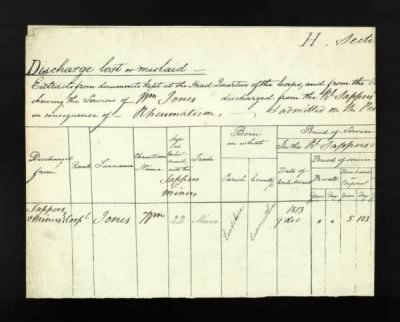 H. Secti
Discharge lost or mislaid —
Extracts from documents kept at the Head Quarters of the Corps, and from the
shewing the Services of Wm Jones discharged from the Rl Sappers
in consequence of - Rheumatism, & admitted on the
Period of Service
Born in what
In the Rl Sappers &
Period of service
Discharged from
Rank
Surname
Christian Name
Age on Enlistment into the Sappers & Miners
Trade
Parish
County
Date of Enlistment
Private
Years Days
Years Days
Sappers & Miners
Corpl
Jones
Wm
22
Miner
1813
9 Dec
" " 5 123